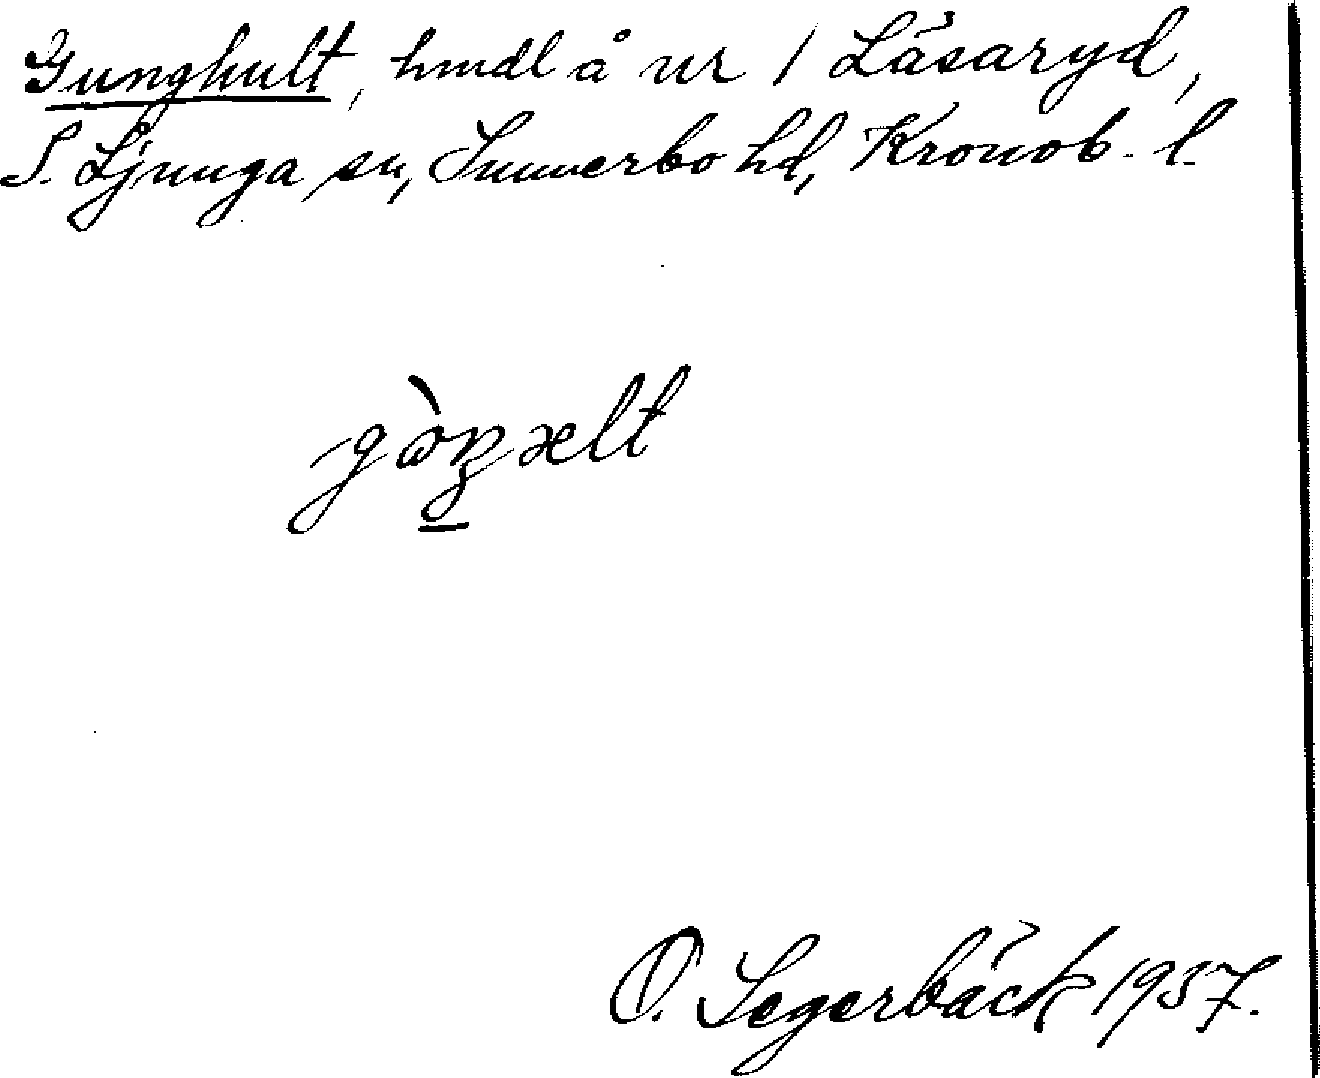 Gunghult, hmdl å nr 1 Läsaryd,
S. Ljunga sn, Sunnerbo hd, Kronob. l.
O. Segerbäck 1937.